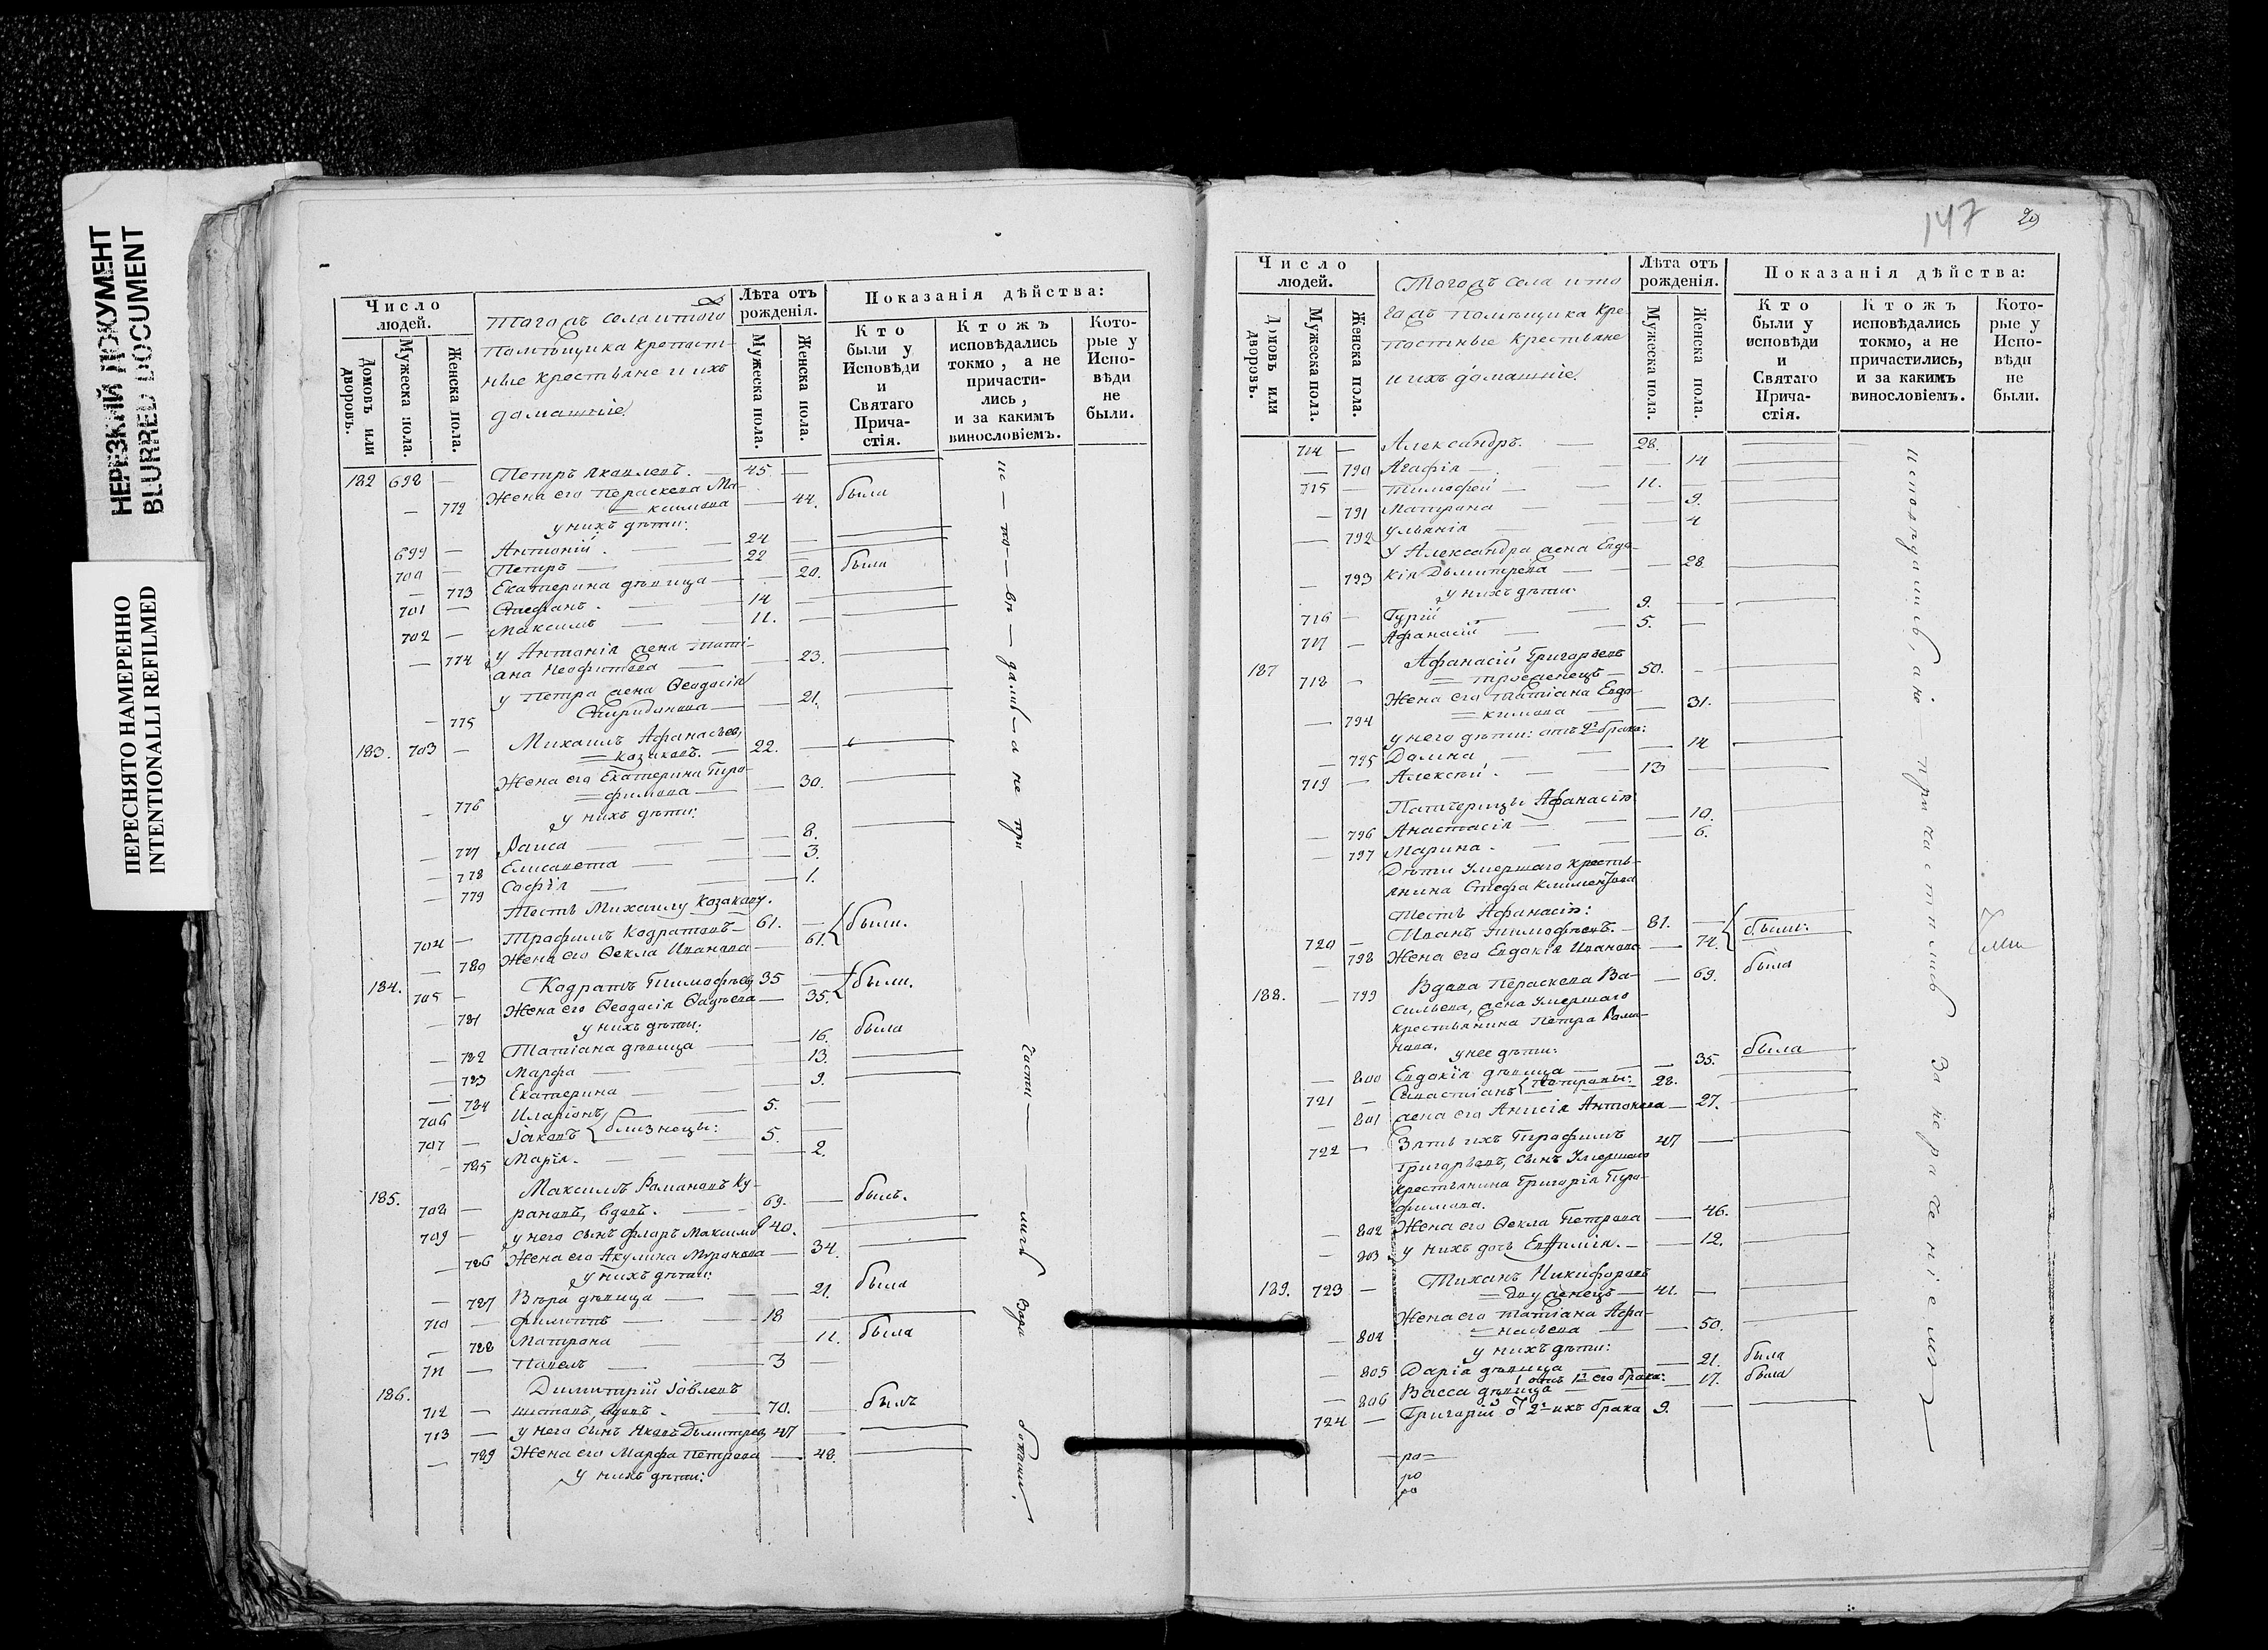 НЕРЕЗКИЙ ДОКУМЕНТ
BLURRED DOCUMENT
ПЕРЕСНЯТО НАМЕРЕННО
INTENTIONALLI REFILMED
Число людей.
Домовъ или дворовъ.
Мужеска пола.
Женска пола.
Тогожъ села и того
помѣщика крепост-
ные крестьяне и ихъ
домашніе
Лѣта отъ рожденія.
Мужеска пола.
Женска пола.
Показанія дѣйства:
Кто были у Исповѣди и Святаго Прича-стія.
Ктожъ исповѣдались токмо, а не причасти-лись, и за какимъ винословіемъ.
Кото-рые у Испо-вѣди не были.
182 698 — Петръ Яковлевъ. — 45. —
— 772 Жена его Параскева Ма-
= кимова — 44. была
у нихъ дѣти:
699 — Антоній. — 24 —
700 — Петръ — 22 —
— 773 Екатерина дѣвица — 20. была
701 — Стефанъ. — 14 —
702 — Максимъ — 11. —
— 774 у Антонія жена Тати-
ана Неофитова — 23.
у Петра жена Ѳеодосія
— 775 Спиридонова — 21.
183. 703 — Михаилъ Афанасьевъ
= Козаковъ. — 22. —
Жена его Екатерина Тро-
— 776 = фимова — 30.
у нихъ дѣти:
— 777 Раиса — 8.
— 778 Елисавета — 3.
— 779 Софія — 1.
Тесть Михаилу Козакову.
704 — Трофимъ Кодратовъ — 61. — были.
— 780 Жена его Ѳекла Иванова — 61.
184. 705 — Кодратъ Тимофѣевъ 35 — были.
— 781 Жена его Ѳеодосія Фадѣева — 35.
у нихъ дѣти:
— 782 Татіана дѣвица — 16. была
— 783 Марфа — 13.
— 784 Екатерина — 9.
706 — Иларіонъ — 5. —
707 — Іаковъ близнецы: — 5. —
— 785 Марія. — 2.
185. Максимъ Романовъ Ку-
708 — рановъ, вдовъ. — 69. — былъ.
709 — у него сынъ Флоръ Максимо 40. —
— 786 Жена его Акулина Миронова — 34.
у нихъ дѣти:
— 787 Вѣра дѣвица — 21. была
710 — Филиппъ — 18 —
— 788 Матрона — 11. была
711 — Павелъ — 3 —
186. Димитрій Іовлевъ
712 — Шестовъ, вдовъ. — 70. — былъ
713 — у него сынъ Яковъ Дымитрев 47 —
— 789 Жена его Марфа Петрова — 48.
у нихъ дѣти:
147
29
Число людей.
Домовъ или дворовъ.
Мужеска пола.
Женска пола.
Тогожъ села и то
гожъ помѣщика кре-
постные крестьяне
и ихъ домашніе.
Лѣта отъ рожденія.
Мужеска пола.
Женска пола.
Показанія дѣйства:
Кто были у исповѣди и Святаго Прича-стія.
Ктожъ исповѣдались токмо, а не причастились, и за какимъ винословіемъ.
Кото-рые у Испо-вѣди не были.
714 — Александръ. — 28.
— 790 Агафія — 14
715 — Тимофей — 11. —
— 791 Матрона — 9.
— 792 Ульянія — 4
у Александра жена Евдо-
— 793 кія Дымитрева — 28.
у нихъ дѣти:
716 — Гурій — 9. —
717 — Афанасій — 5. —
187 Афанасій Григорьевъ
718 — 50. —
Жена его Татіана Евдо-
— 794 = кимова — 31.
у него дѣти: отъ 2го брака:
— 795 Домна — 14
719 — Алексѣй. — 13 —
Патчерицы Афанасію
— 796 Анастасія — 10.
— 797 Марина. — 6.
Дѣти умершаго кресть-
янина Стефа Климентова
Тесть Афанасію:
720 — Иванъ Тимофѣевъ. — 81. — были.
— 798 Жена его Евдокія Иванова — 74.
188. — 799 Вдова Параскева Ва- — 69. была
сильева, жена умершаго
крестьянина Петра Рома-
нова. у нее дѣти:
— 800 Евдокія дѣвица — 35. была
721 — Севастіанъ 28.
— 801 жена его Анисія Антонова — 27.
722 — Зять ихъ Трофимъ 47 —
Григорьевъ, сынъ умершаго
крестьянина Григорія Тро-
фимова.
— 802 Жена его Ѳекла Петрова — 46.
— 803 у нихъ дочь Евфимія. — 12.
189. 723 — Тихонъ Никифоровъ
41. —
Жена его Татіана Афа-
— 804 = насьева — 50.
у нихъ дѣти:
— 805 Дарія дѣвица — 21. была
отъ 1го его брака:
— 806 Васса дѣвица — 17. была
724 — Григорій о 2го ихъ брака 9. —